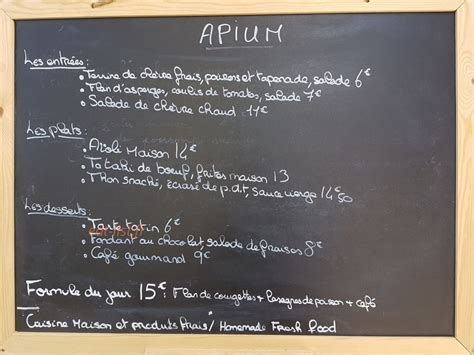 APIUM
Les entrées :
• Terrine de chèvre frais, poivrons et tapenade, salade 6€
• Flan d'asperges, coulis de tomates, salade 7€
• Salade de chèvre chaud 11€
Les plats :
• Aïoli Maison 14€
• Tataki de boeuf, frites maison 13
• Thon snacké, écrasé de p.d.t, sauce vierge 14€50
Les desserts :
• Tarte tatin 6€
• Fondant au chocolat, salade de fraises 8€
• Café gourmand 9€
Formule du jour 15€ : Flan de courgettes + Lasagnes de poisson + café
Cuisine Maison et produits frais / Homemade Fresh food